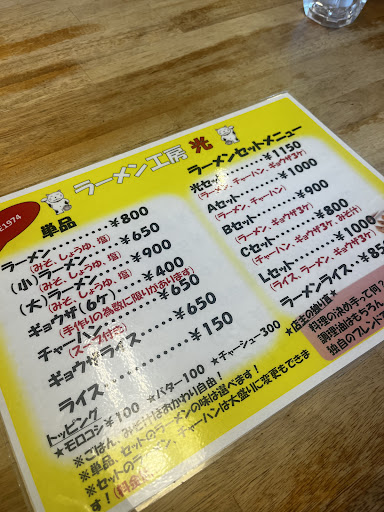 E1974
ラーメン工房 光
単品
ラーメン・・・・・・・・・￥800
(みそ、しょうゆ、塩)
(小)ラーメン・・・・・￥650
(みそ、しょうゆ、塩)
(大)ラーメン・・・・・￥900
(みそ、しょうゆ、塩)
ギョウザ(6ヶ)・・・￥400
(手作りの為数に限りがあります)
チャーハン・・・・・・￥650
(スープ付き)
ギョウザライス・・・￥650
ライス・・・・・・・・・￥150
トッピング
★モロコシ￥100 ★バター100 ★チャーシュー300
※ごはん、みそ汁はおかわり自由！
※単品、セットのラーメンの味は選べます！
※セットのラーメン、チャーハンは大盛りに変更もできま
す！(料金
ラーメンセットメニュー
光セット・・・・・・￥1150
(ラーメン、チャーハン、ギョウザ3ケ)
Aセット・・・・・・￥1000
(ラーメン、チャーハン)
Bセット・・・・・・￥900
(ラーメン、ギョウザ3ケ)
Cセット・・・・・・￥850
(チャーハン、ギョウザ3ケ、みそ汁)
Lセット・・・・・・￥1000
(ライス、ラーメン、ギョウザ3ケ)
ラーメンライス・・￥85
★店主の独り言★
料理の決め手って何？
調理油はもちろん
独自のブレンド